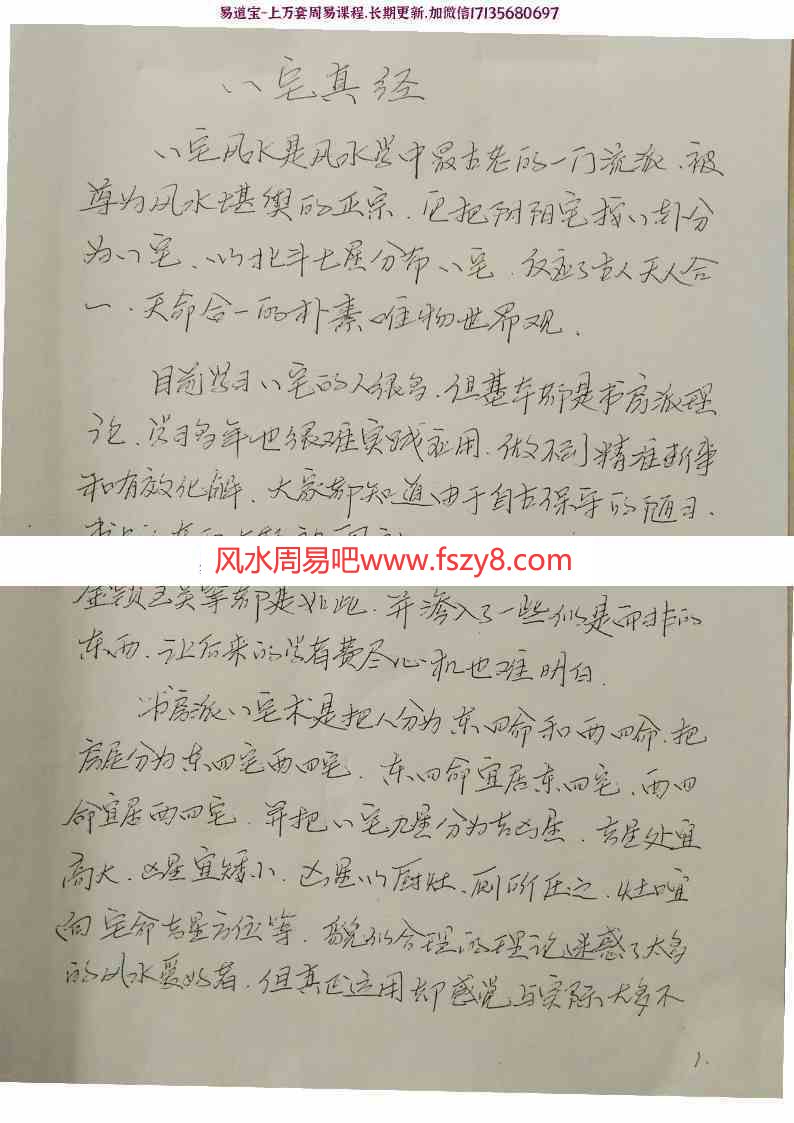 易道宝-上万套周易课程.长期更新.加微信17135680697
八宅真经
八宅风水是风水学中最古老的一门流派、被
尊为风水堪舆的正宗、它把阴阳宅按八卦分
为八宅、以北斗七星分布八宅、反应了古人天人合
一、天命合一的朴素唯物世界观.
目前学习八宅的人很多.但基本都是书房派理
论、学习多年也很难实践应用.做不到精准断事
和有效化解、大家都知道由于自古保守的陋习、
风水周易吧www.fszy8.com
金锁玉关等都是如此.并渗入了一些似是而非的
东西、让后来的学者费尽心机也难明白.
书房派八宅术是把人分为东四命和西四命.把
房屋分为东四宅西四宅、东四命宜居东四宅、西四
命宜居西四宅、并把八宅九星分为吉凶星、吉星处宜
高大、凶星宜矮小、凶星以厨灶、厕所压之、灶口宜
向宅命吉星方位等、貌似合理的理论迷惑了太多
的风水爱好者、但真正运用却感觉与实际大多不
1.